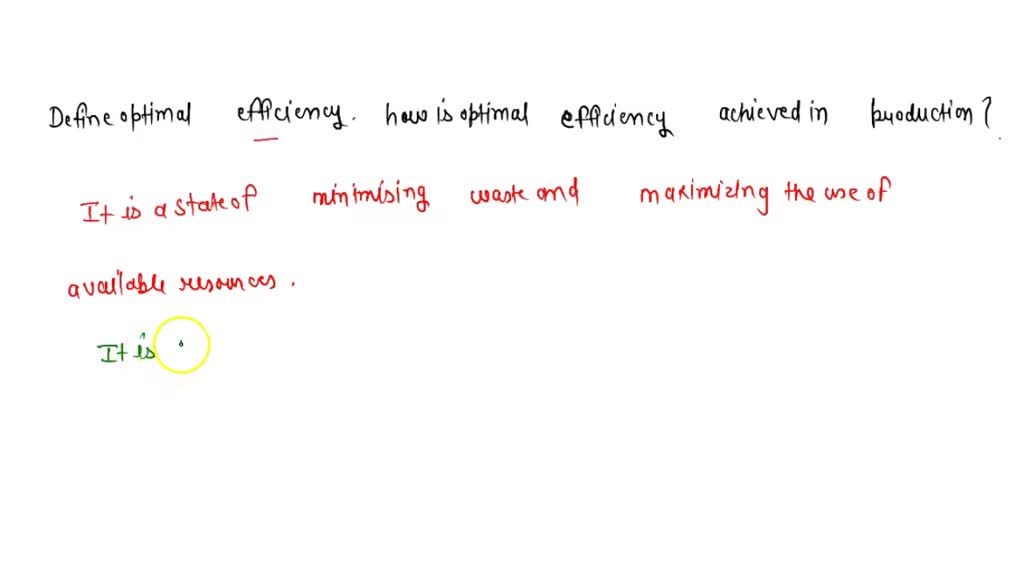 Define optimal efficiency. how is optimal efficiency achieved in production?
It is a state of minimising waste and maximizing the use of
available resources.
It is